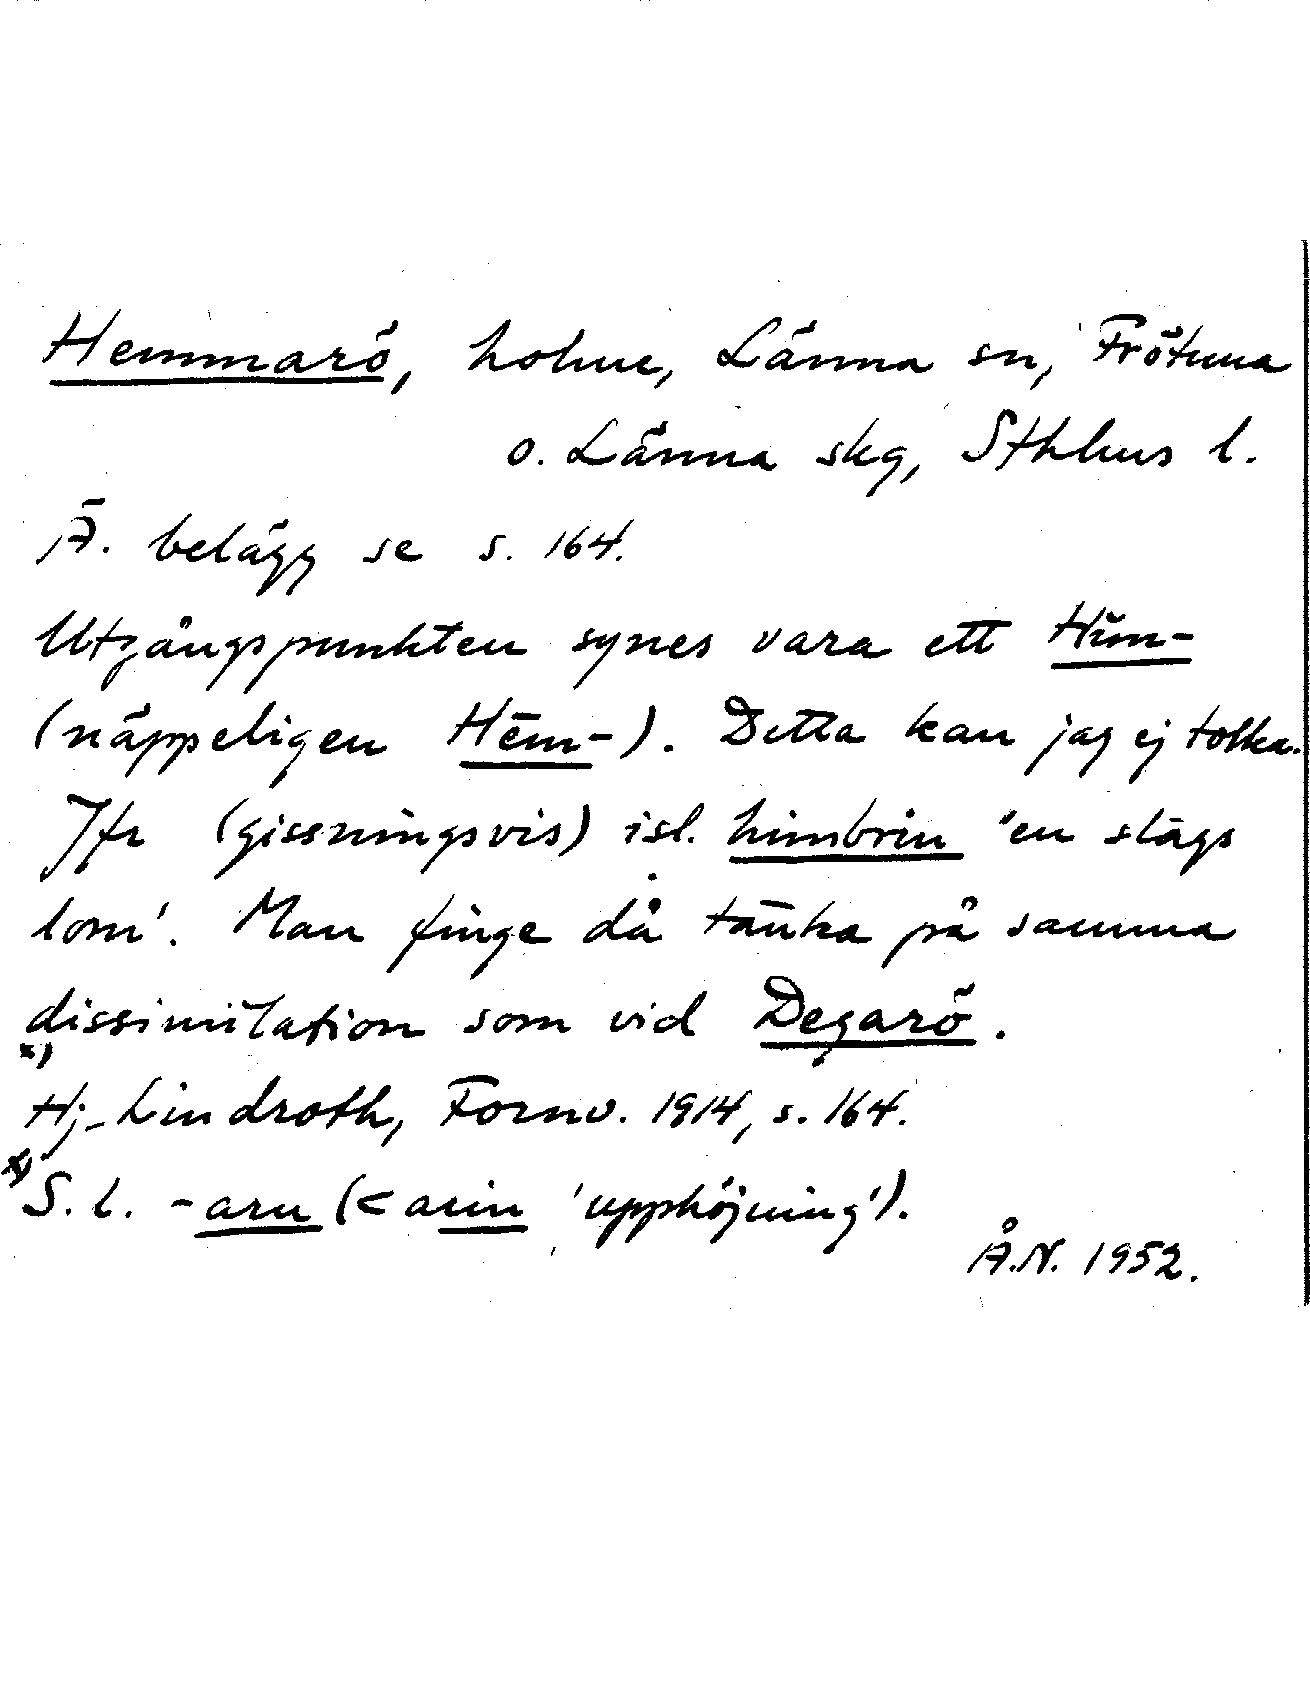 Hemmarö, holme, Länna sn, Frötuna
o. Länna skg, Sthlms l.
Ä. belägg se s. 164.
Utgångspunkten synes vara ett Him-
(näppeligen Hem-). Detta kan jag ej tolka.
Jfr (gissningsvis) isl. himbrin 'en slags
lom'. Man finge då tänka på samma
dissimilation som vid Degarö.
x)
Hj. Lindroth, Fornv. 1914, s. 164.
x) S. l. -aru (< arin 'upphöjning').
Å.N. 1952.